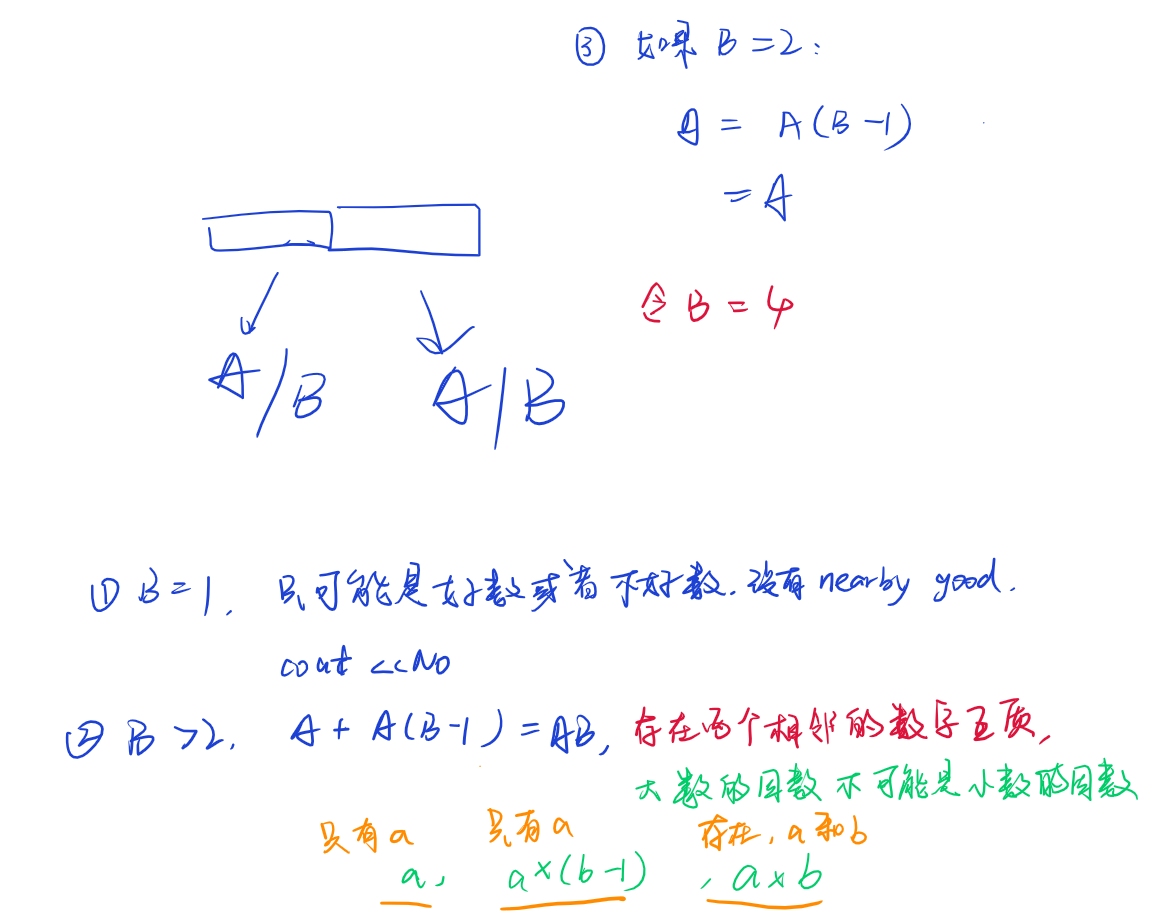 ③ 如果 B=2:
A = A(B-1)
= A
令 B = 4
A/B A/B
① B=1, 只可能是好数或者不好数. 没有 nearby good.
cout <<No
② B>2, A + A(B-1) = AB, 存在两个相邻的数字互质,
大数的因数不可能是小数的因数
只有a 只有a 存在, a和b
a, a×(b-1) , a×b